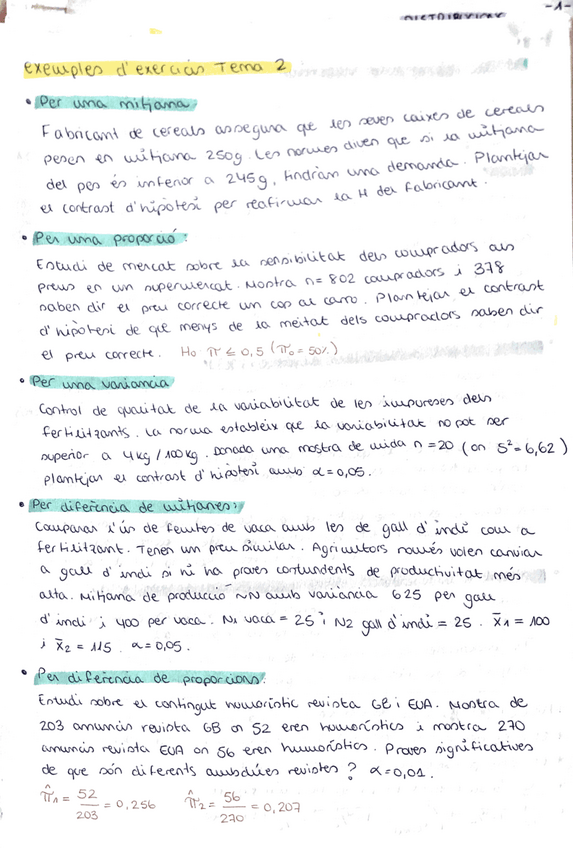 -1-
exemples d'exercicis Tema 2
• Per una mitjana
Fabricant de cereals assegura que les seves caixes de cereals
pesen en mitjana 250g. Les normes diuen que si la mitjana
del pes és inferior a 245g, tindràn una demanda. Plantejar
el contrast d'hipotesi per reafirmar la H del fabricant.
• Per una proporció:
Estudi de mercat sobre la sensibilitat dels compradors als
preus en un supermercat. Mostra n=802 compradors i 378
saben dir el preu correcte un cop al carro. Plantejar el contrast
d'hipotesi de que menys de la meitat dels compradors saben dir
el preu correcte. H₀ π ≤ 0,5 (π₀ = 50%)
• Per una variancia
Control de qualitat de la variabilitat de les impureses dels
fertilitzants. La norma estableix que la variabilitat no pot ser
superior a 4kg/100kg. Donada una mostra de mida n=20 (on S²=6,62)
plantejar el contrast d'hipotesi amb α=0,05.
• Per diferència de mitjanes:
Comparar l'ús de femtes de vaca amb les de gall d'indi com a
fertilitzant. Tenen un preu similar. Agricultors només volen canviar
a gall d'indi si hi ha proves contundents de productivitat més
alta. Mitjana de producció ~N amb variancia 625 per gall
d'indi i 400 per vaca. N₁ vaca = 25 i N2 gall d'indi = 25. x̄₁ = 100
i x̄₂ = 115. α=0,05.
• Per diferència de proporcions:
Estudi sobre el contingut humorístic revista GB i EUA. Mostra de
203 anuncis revista GB on 52 eren humorístics i mostra 270
anuncis revista EUA on 56 eren humorístics. Proves significatives
de que són diferents ambdúes revistes? α=0,01.
π̂₁ = 52/203 = 0,256 π̂₂ = 56/270 = 0,207